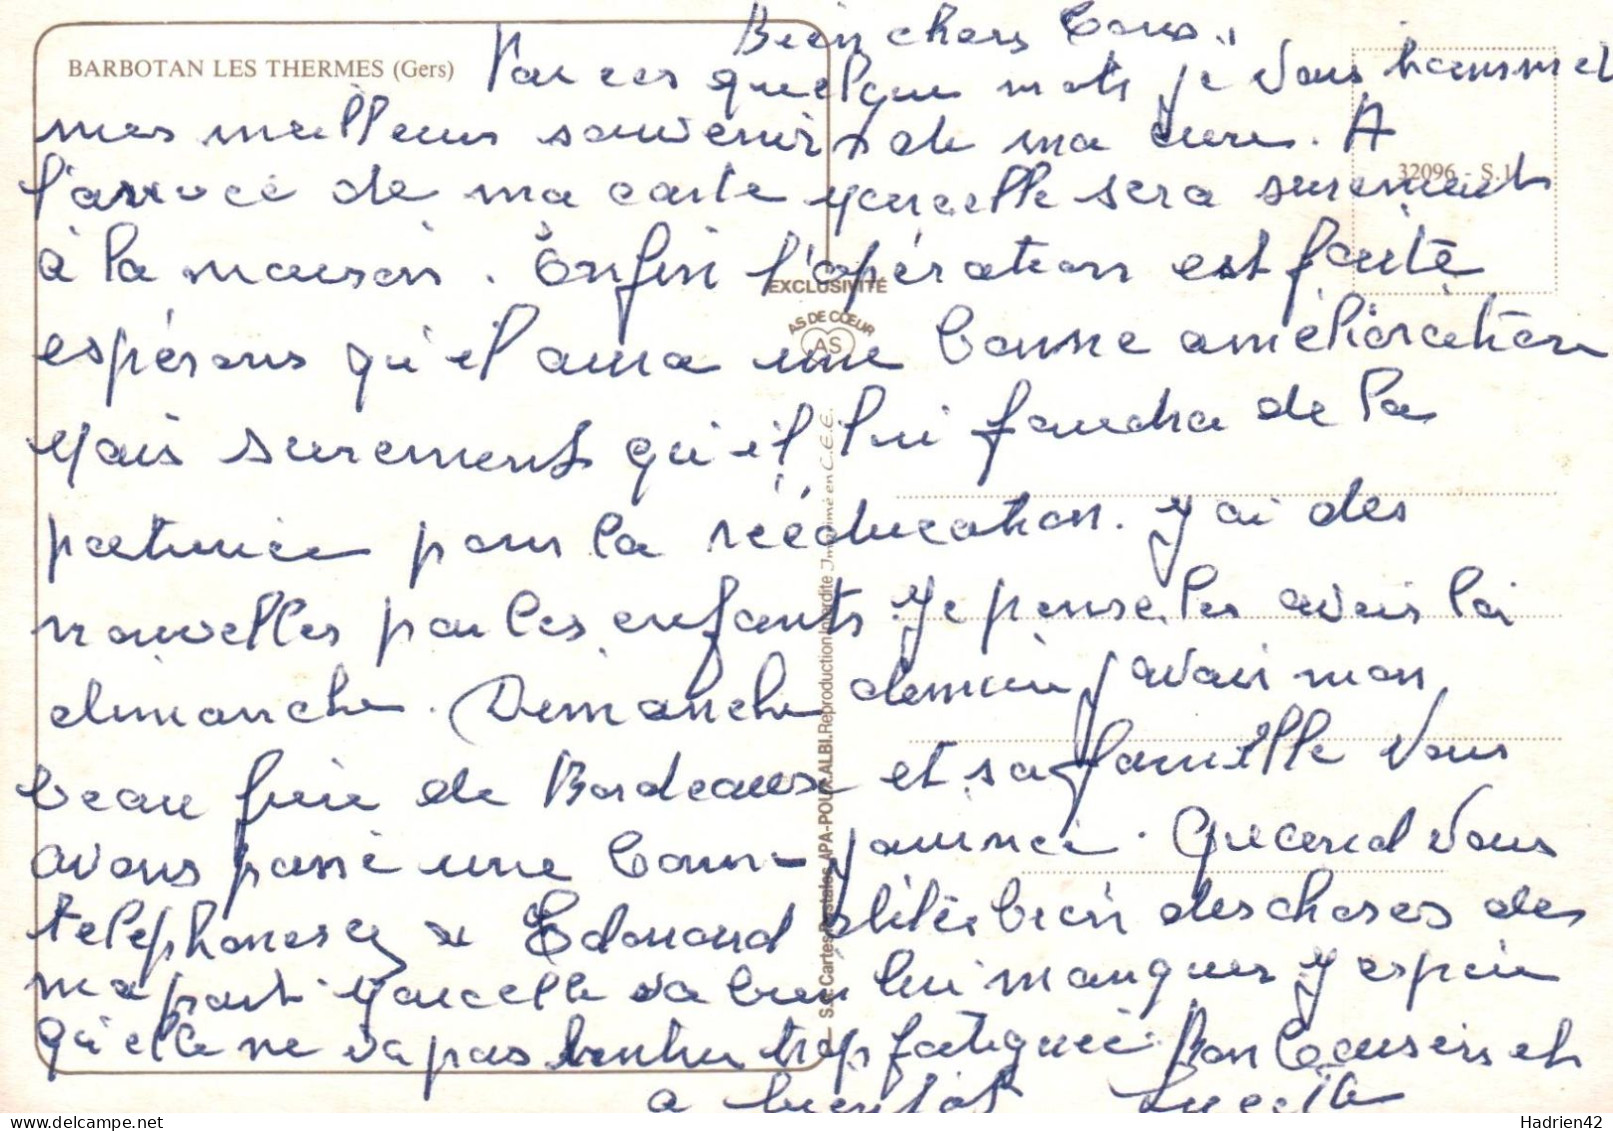 BARBOTAN LES THERMES (Gers)
Bien chers tous..
Par ces quelque mots je vous
mes meilleurs souvenirs de ma cure. A
32096 - S.1
l'arrivée de ma carte Marcelle sera surement
à la maison. Enfin l'opération est faite
EXCLUSIVITÉ
AS DE CŒUR
AS
espérons qu'il aura une bonne amélioration
Mais surement qu'il lui faudra de la
patience pour la rééducation. J'ai des
nouvelles par les enfants. Je pense les avoir ici
dimanche. Dimanche dernier j'avais mon
beau frère de Bordeaux et sa famille Nous
avons passé une bonne journée. Quand vous
telephonerez a Edouard dites bien des choses de
ma part. Marcelle va bien lui manquer j'espère
qu'elle ne va pas rentrer trop fatiguée. Bon baisers et
a bientot Lucette
S.L. Cartes Postales APA-POUX ALBI. Reproduction Interdite Imprimé en C.E.E.
Hadrien42